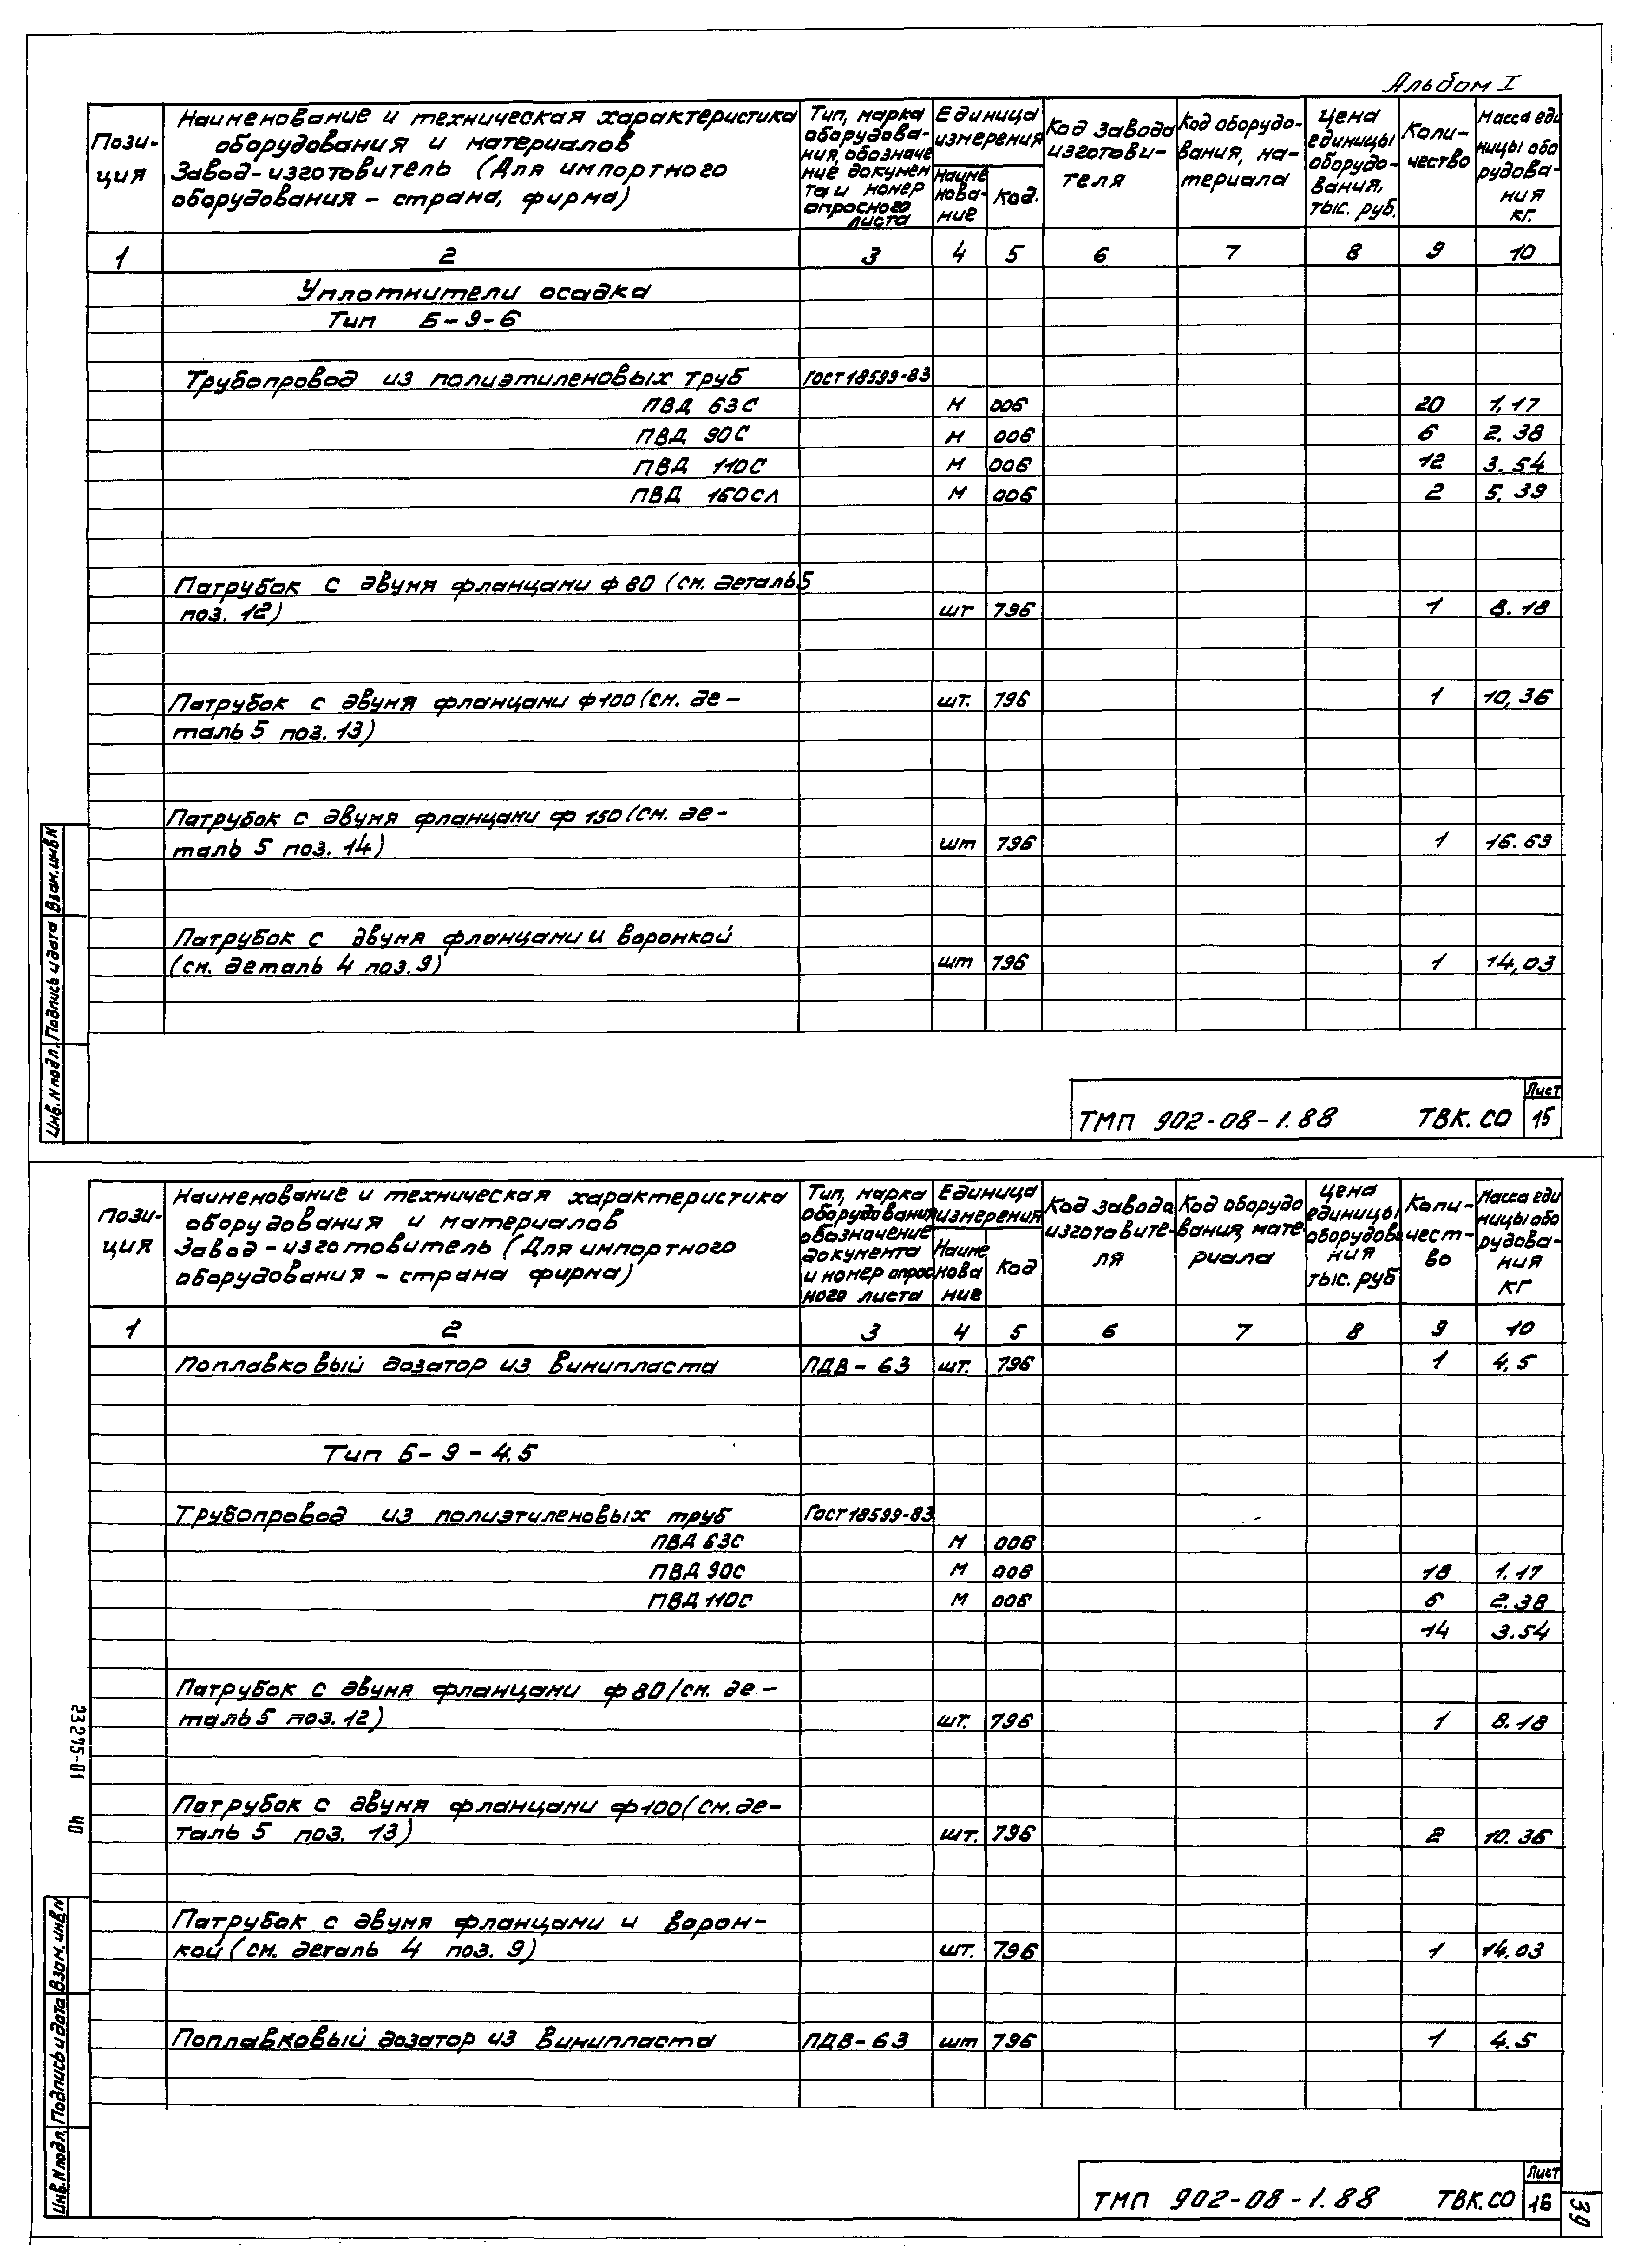 Альбом I
Пози-
ция
Наименование и техническая характеристика
оборудования и материалов
Завод-изготовитель (Для импортного
оборудования - страна, фирма)
Тип, марка
оборудова-
ния, обозначе
ние докумен
та и номер
опросного
листа
Единица
измерения
Наиме
нова-
ние
Код.
Код завода
изготови-
теля
Код оборудо-
вания, ма-
териала
Цена
единицы
оборудо-
вания,
тыс. руб.
Коли-
чество
Масса еди
ницы обо
рудова-
ния
кг.
1 2 3 4 5 6 7 8 9 10
Уплотнители осадка
Тип Б-9-6
Трубопровод из полиэтиленовых труб ГОСТ 18599-83
ПВД 63С М 006 20 1,17
ПВД 90С М 006 6 2.38
ПВД 110С М 006 12 3.54
ПВД 160СЛ М 006 2 5.39
Патрубок с двумя фланцами ф 80 (см. деталь 5
поз. 12) шт 796 1 8.18
Патрубок с двумя фланцами ф 100 (см. де- шт. 796 1 10,36
таль 5 поз. 13)
Патрубок с двумя фланцами ф 150 (см. де-
таль 5 поз. 14) шт 796 1 16.69
Патрубок с двумя фланцами и воронкой
(см. деталь 4 поз. 9) шт 796 1 14,03
Инв. N подл. Подпись и дата Взам. инв. N
ТМП 902-08-1.88 ТВК.СО
Лист
15
Пози-
ция
Наименование и техническая характеристика
оборудования и материалов
Завод-изготовитель (Для импортного
оборудования - страна фирма)
Тип, марка
оборудования
обозначение
документа
и номер опрос
ного листа
Единица
измерения
Наиме
нова
ние
Код
Код завода
изготовите-
ля
Код оборудо
вания, мате-
риала
Цена
единицы
оборудова
ния
тыс. руб
Коли-
чест-
во
Масса еди
ницы обо
рудова-
ния
кг
1 2 3 4 5 6 7 8 9 10
Поплавковый дозатор из винипласта ПДВ-63 шт. 796 1 4,5
Тип Б-9-4,5
Трубопровод из полиэтиленовых труб ГОСТ 18599-83
ПВД 63С М 006
ПВД 90С М 006 18 1.17
ПВД 110С М 006 6 2.38
14 3.54
Патрубок с двумя фланцами ф 80 /см. де-
таль 5 поз. 12) шт. 796 1 8.18
Патрубок с двумя фланцами ф 100 (см. де-
таль 5 поз. 13) шт. 796 2 10.36
Патрубок с двумя фланцами и ворон-
кой (см. деталь 4 поз. 9) шт. 796 1 14.03
Поплавковый дозатор из винипласта ПДВ-63 шт 796 1 4.5
23275-01 40
Инв. N подл. Подпись и дата Взам. инв. N
ТМП 902-08-1.88 ТВК.СО
Лист
16
39